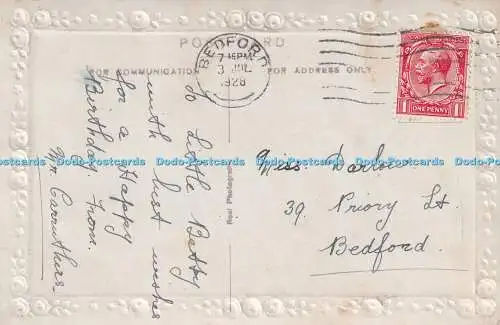 POST CARD
FOR COMMUNICATION
FOR ADDRESS ONLY
BEDFORD
7 15 PM
3 JUL
1928
ONE PENNY
To Little Betty
with best wishes
for a Happy
Birthday from.
Mr. Carruthers.
Real Photograph
Miss. Barlow
39, Priory St.
Bedford.
Dodo-Postcards Dodo-Postcards Dodo-Postcards Dodo-Postcards Dodo-Postcards Dodo-Postcards